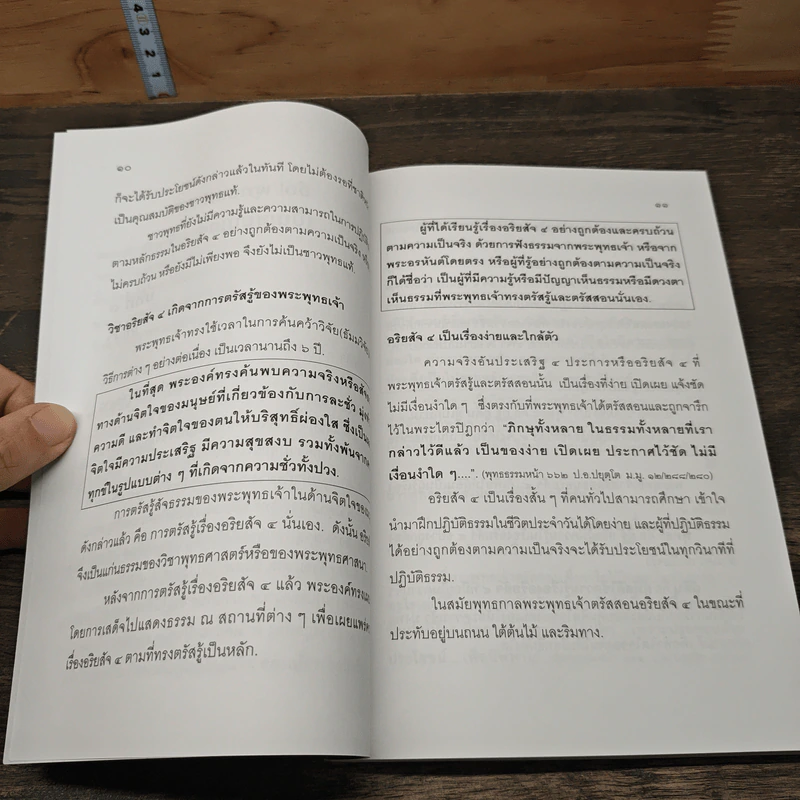 4 3 2
๑๐
ก็จะได้รับประโยชน์ดังกล่าวแล้วในทันที โดยไม่ต้องรอที่
เป็นคุณสมบัติของชาวพุทธแท้.
ชาวพุทธที่ยังไม่มีความรู้และความสามารถในการ
ตามหลักธรรมในอริยสัจ ๔ อย่างถูกต้องตามความเป็นจริง
ไม่ครบถ้วน หรือยังมีไม่เพียงพอ จึงยังไม่เป็นชาวพุทธแท้.
วิชาอริยสัจ ๔ เกิดจากการตรัสรู้ของพระพุทธเจ้า
พระพุทธเจ้าทรงใช้เวลาในการค้นคว้าวิจัย(ธัมมวิจัย)
วิธีการต่าง ๆ อย่างต่อเนื่อง เป็นเวลานานถึง ๖ ปี.
ในที่สุด พระองค์ทรงค้นพบความจริงหรือสัจ
ทางด้านจิตใจของมนุษย์ที่เกี่ยวข้องกับการละชั่ว
ความดี และทำจิตใจของตนให้บริสุทธิ์ผ่องใส ซึ่งเป็น
จิตใจมีความประเสริฐ มีความสุขสงบ รวมทั้งพ้นจาก
ทุกข์ในรูปแบบต่าง ๆ ที่เกิดจากความชั่วทั้งปวง.
การตรัสรู้สัจธรรมของพระพุทธเจ้าในด้านจิตใจของ
ดังกล่าวแล้ว คือ การตรัสรู้เรื่องอริยสัจ ๔ นั่นเอง. ดังนั้น
จึงเป็นแก่นธรรมของวิชาพุทธศาสตร์หรือของพระพุทธศาสนา.
หลังจากการตรัสรู้เรื่องอริยสัจ ๔ แล้ว พระองค์ทรง
โดยการเสด็จไปแสดงธรรม ณ สถานที่ต่าง ๆ เพื่อเผยแพร่
เรื่องอริยสัจ ๔ ตามที่ทรงตรัสรู้เป็นหลัก.
๑๑
ผู้ที่ได้เรียนรู้เรื่องอริยสัจ ๔ อย่างถูกต้องและครบถ้วน
ตามความเป็นจริง ด้วยการฟังธรรมจากพระพุทธเจ้า หรือจาก
พระอรหันต์โดยตรง หรือผู้ที่รู้อย่างถูกต้องตามความเป็นจริง
ก็ได้ชื่อว่า เป็นผู้ที่มีความรู้หรือมีปัญญาเห็นธรรมหรือมีดวงตา
เห็นธรรมที่พระพุทธเจ้าทรงตรัสรู้และตรัสสอนนั่นเอง.
อริยสัจ ๔ เป็นเรื่องง่ายและใกล้ตัว
ความจริงอันประเสริฐ ๔ ประการหรืออริยสัจ ๔ ที่
พระพุทธเจ้าตรัสรู้และตรัสสอนนั้น เป็นเรื่องที่ง่าย เปิดเผย แจ้งชัด
ไม่มีเงื่อนงำใด ๆ ซึ่งตรงกับที่พระพุทธเจ้าได้ตรัสสอนและถูกจารึก
ไว้ในพระไตรปิฎกว่า "ภิกษุทั้งหลาย ในธรรมทั้งหลายที่เรา
กล่าวไว้ดีแล้ว เป็นของง่าย เปิดเผย ประกาศไว้ชัด ไม่มี
เงื่อนงำใด ๆ....". (พุทธธรรมหน้า ๖๖๒ ป.อ.ปยุตฺโต ม.มู. ๑๒/๒๘๘/๒๘๐)
อริยสัจ ๔ เป็นเรื่องสั้น ๆ ที่คนทั่วไปสามารถศึกษา เข้าใจ
นำมาฝึกปฏิบัติธรรมในชีวิตประจำวันได้โดยง่าย และผู้ที่ปฏิบัติธรรม
ได้อย่างถูกต้องตามความเป็นจริงจะได้รับประโยชน์ในทุกวินาทีที่
ปฏิบัติธรรม.
ในสมัยพุทธกาลพระพุทธเจ้าตรัสสอนอริยสัจ ๔ ในขณะที่
ประทับอยู่บนถนน ใต้ต้นไม้ และริมทาง.